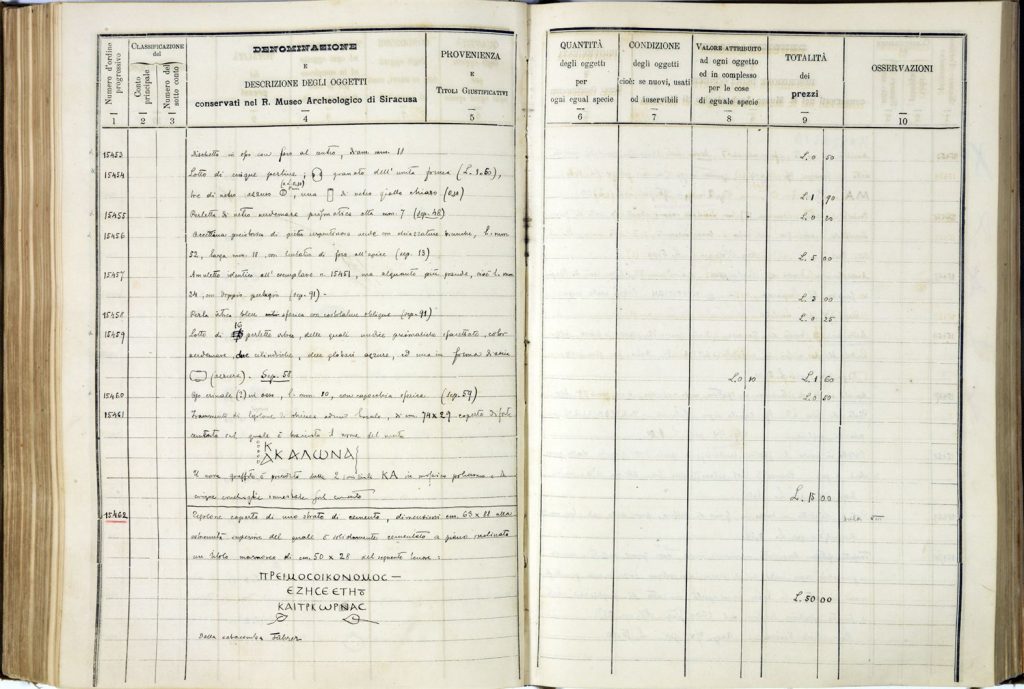 Numero d'ordine progressivo
CLASSIFICAZIONE del
Conto principale
Numero del sotto conto
DENOMINAZIONE
E
DESCRIZIONE DEGLI OGGETTI
conservati nel R. Museo Archeologico di Siracusa
PROVENIENZA
E
TITOLI GIUSTIFICATIVI
1 2 3 4 5
QUANTITÀ
degli oggetti
per
ogni egual specie
CONDIZIONE
degli oggetti
cioè: se nuovi, usati
od inservibili
VALORE ATTRIBUITO
ad ogni oggetto
ed in complesso
per le cose
di eguale specie
TOTALITÀ
dei
prezzi
OSSERVAZIONI
6 7 8 9 10
15453 Dischetto in osso con foro al centro, diam. mm. 11 L. 0 50
15454 Lotto di cinque perline; granato dell'unità forma (L. 1.50),
tre di vetro azzuro, una di vetro giallo chiaro (0,10) L. 1 90
15455 Perletta di vetro verdemare prismatica alta mm. 7 (sep. 48) L. 0 20
15456 di pietra verde con bianche, l. mm
52, larga mm. 18, con tentativo di foro all'apice (sep. 13) L. 5 00
15457 Amuletto identico all'esemplare n. 15451, ma alquanto più grande, cioè l. mm
24, con doppio pertugio (sep. 91). L. 2 00
15458 Perla bleu sferica con costolature oblique (sep. 91) L. 0 25
15459 Lotto di 16 perlette vitree, delle quali undici prismatiche sfaccettate, color
verdemare, due cilindriche, due globari azzurre, ed una in forma di
(azzurra). Sep. 58. L. 0 10 L. 1 60
15460 Ago crinale (?) in osso, l. mm. 80, con capocchia sferica (sep. 59) L. 0 50
15461 Frammento di tegolone di chiusura ad un loculo, di cm. 74 x 29 coperto di forte
cemento sul quale è tracciato il nome del morto
ΚΑΛΩΝΑ
Il nome graffito è preceduto dalle 2 iniziali KA in mosaico policromo e da
cinque conchiglie immesse nel cemento L. 15 00
15462 Tegolone coperto di uno strato di cemento, dimensioni cm. 63 x 81 alla
estremità superiore del quale è solidamente cementato a piano inclinato
un titolo marmoreo di cm. 50 x 28 del seguente tenore:
ΠΡΕΙΜΟCΟΙΚΟΝΟΜΟC —
ΕΖΗCΕΕΤΗ
ΚΑΙΤΡΚΩΡΝΑC L. 50 00
Dalla catacomba Führer